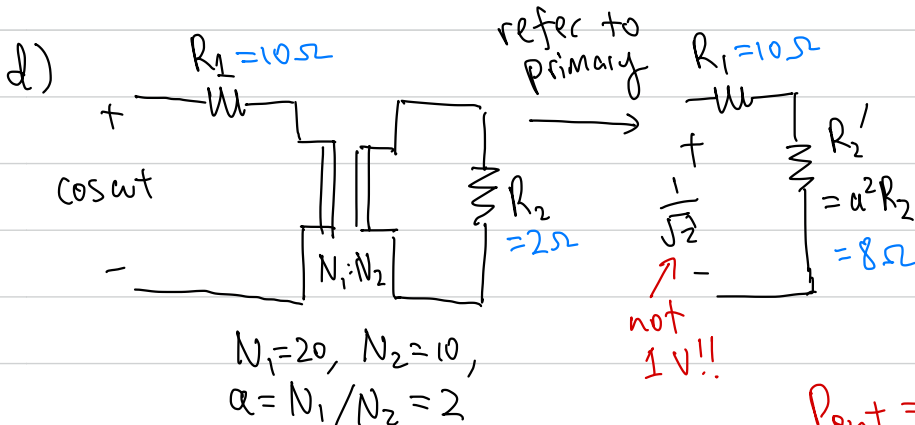 d)
R₁ = 10Ω
+
cosωt
−
N₁:N₂
R₂
= 2Ω
N₁ = 20, N₂ = 10,
a = N₁/N₂ = 2
refer to
primary
R₁ = 10Ω
+
1/√2
−
R₂'
= a²R₂
= 8Ω
not
1V!!
Pout =